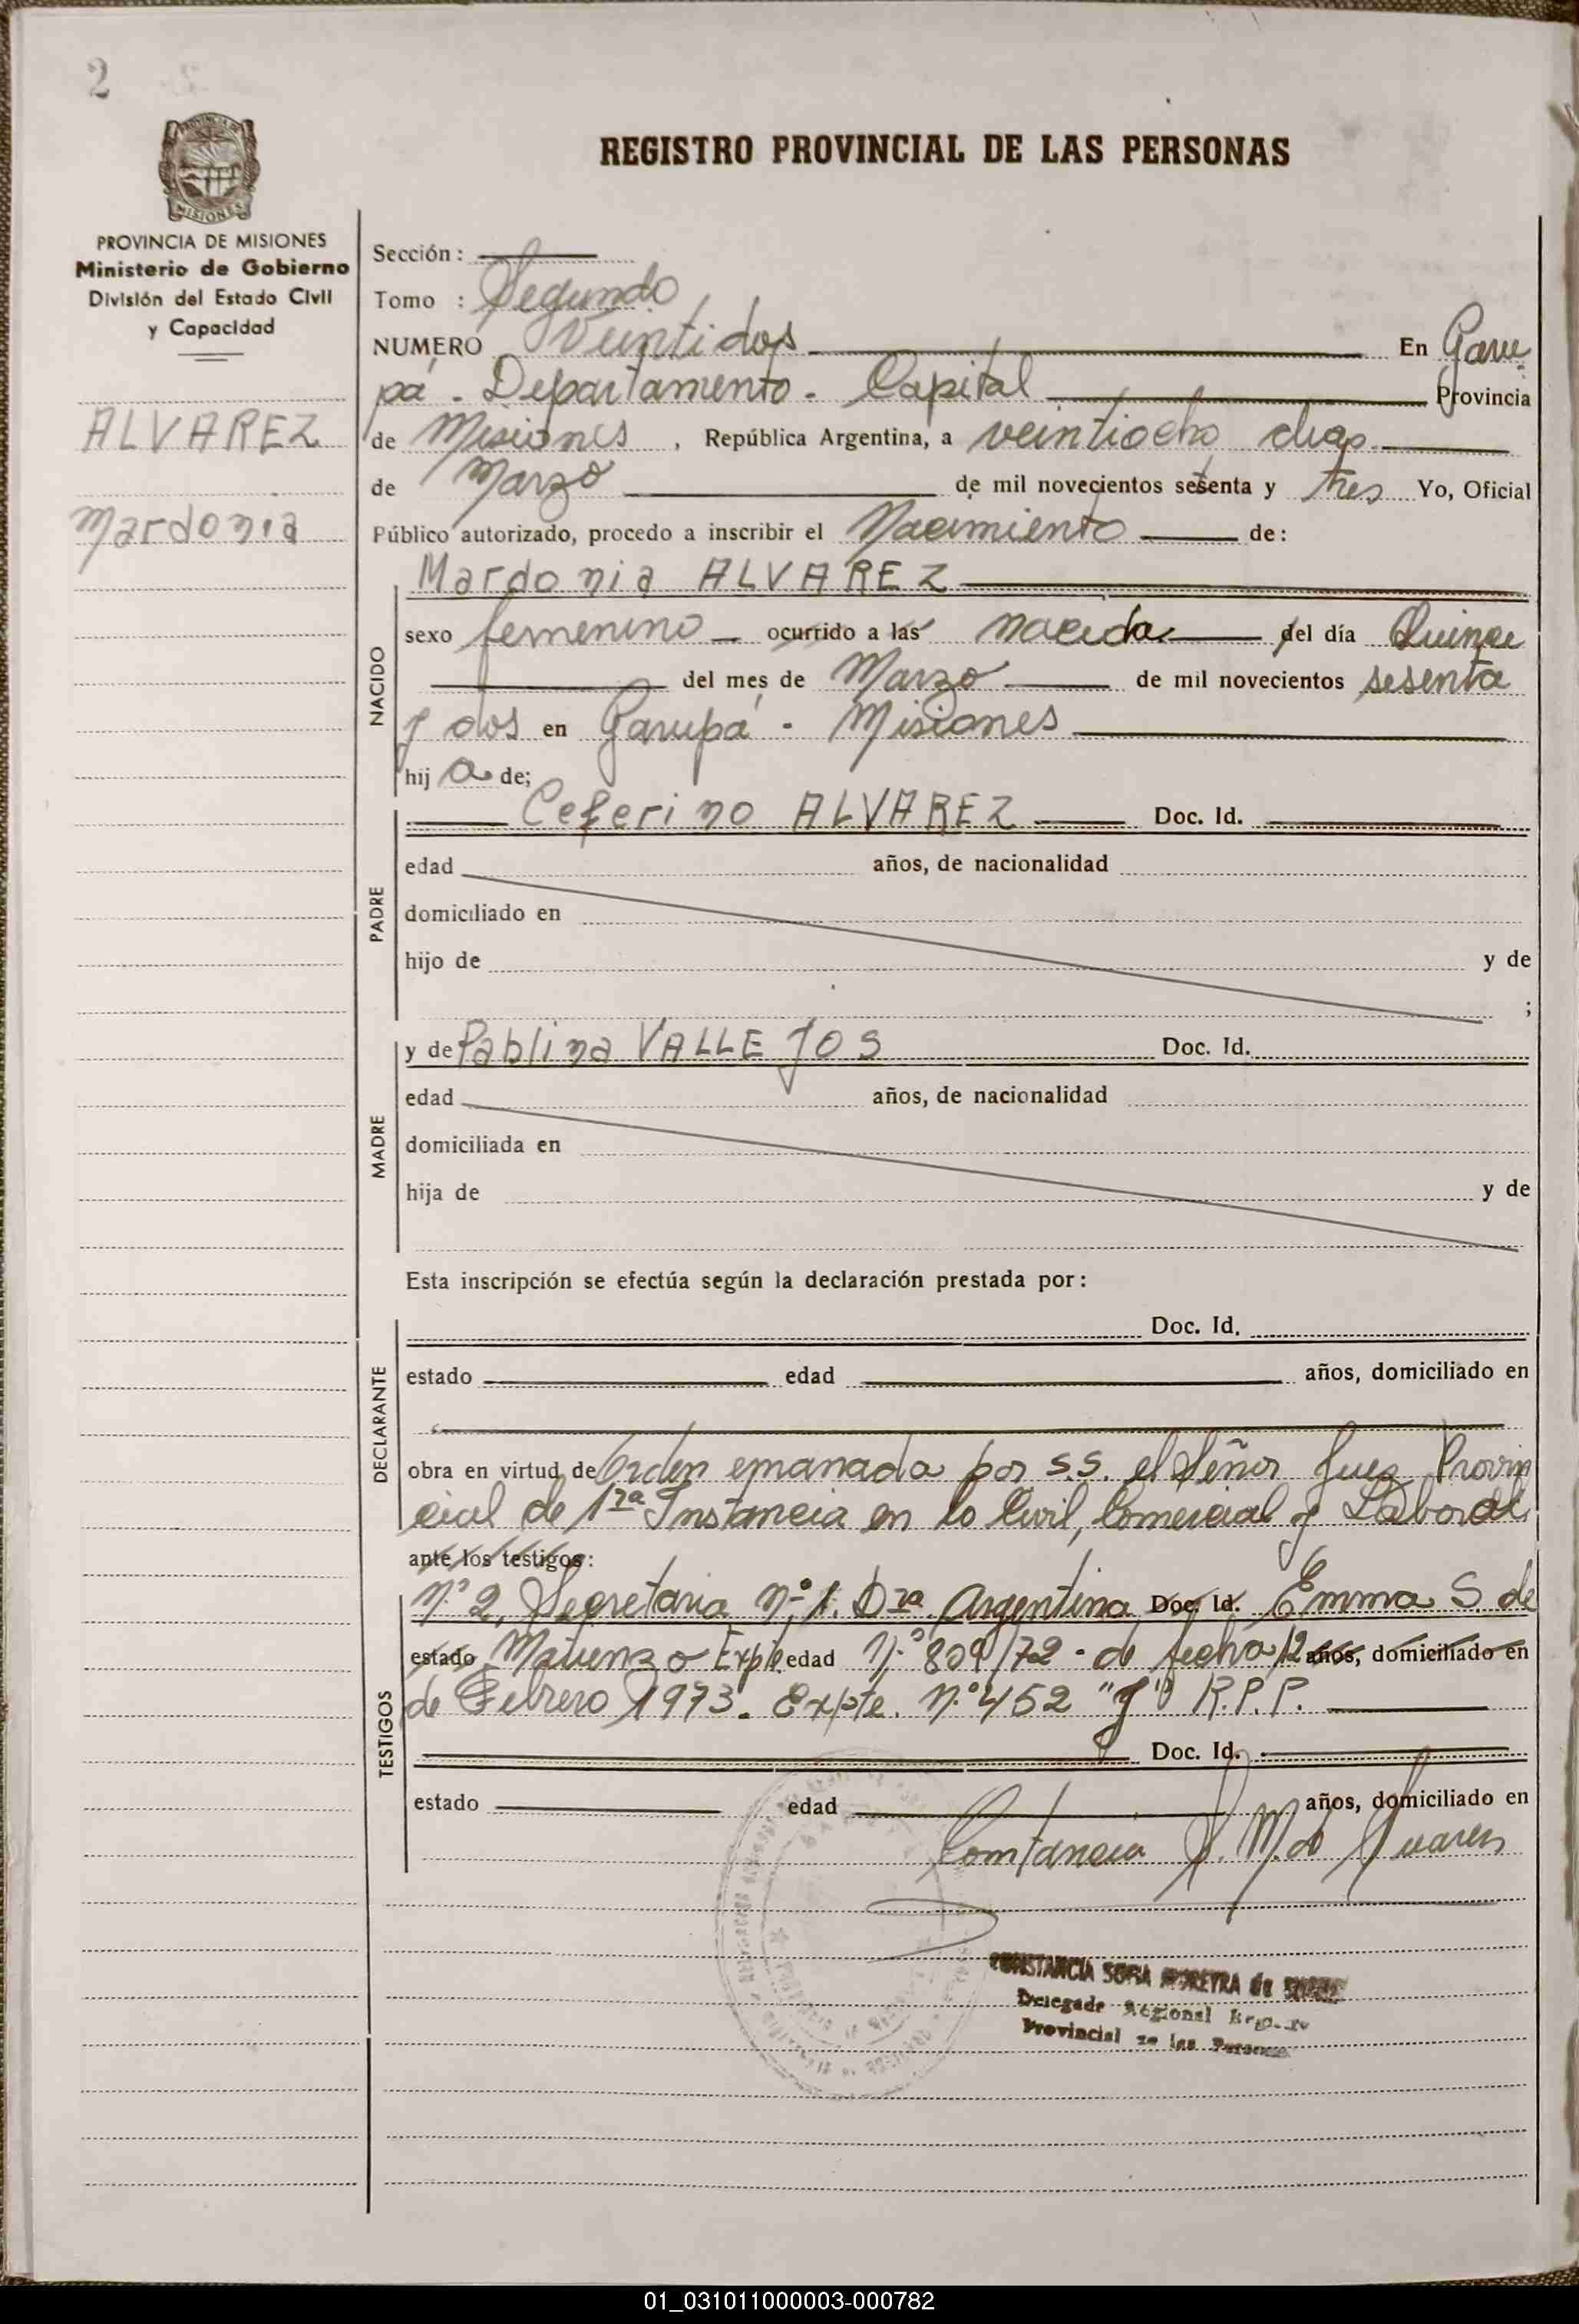 2
PROVINCIA DE MISIONES
Ministerio de Gobierno
División del Estado Civil
y Capacidad
ALVAREZ
Mardonia
REGISTRO PROVINCIAL DE LAS PERSONAS
Sección:
Tomo : Segundo
NUMERO Veintidos En Garu
pá - Departamento - Capital Provincia
de Misiones, República Argentina, a veintiocho dias
de Marzo de mil novecientos setenta y tres Yo, Oficial
Público autorizado, procedo a inscribir el Nacimiento de:
Mardonia ALVAREZ
NACIDO
sexo femenino ocurrido a las nacida del día Quince
del mes de Marzo de mil novecientos sesenta
y dos en Garupá - Misiones
hij a de;
PADRE
Ceferino ALVAREZ Doc. Id.
edad años, de nacionalidad
domiciliado en
hijo de y de
;
MADRE
y de Pablina VALLEJOS Doc. Id.
edad años, de nacionalidad
domiciliada en
hija de y de
Esta inscripción se efectúa según la declaración prestada por:
DECLARANTE
Doc. Id.
estado edad años, domiciliado en
obra en virtud de Orden emanada por S.S. el Señor Juez Provin
cial de 1ra Instancia en lo Civil, Comercial y Laboral
ante los testigos:
TESTIGOS
Nº 2, Secretaria Nº 1. Dra Argentina Doc. Id. Emma S. de
estado Matienzo Expte edad Nº 809/72 - de fecha 12 años, domiciliado en
de Febrero 1973. Expte. Nº 452 "J" R.P.P.
Doc. Id.
estado edad años, domiciliado en
Constancia S. M. de Suarez
CONSTANCIA SOFIA MOREYRA de
Delegada Regional
Provincial de las Personas
01_031011000003-000782